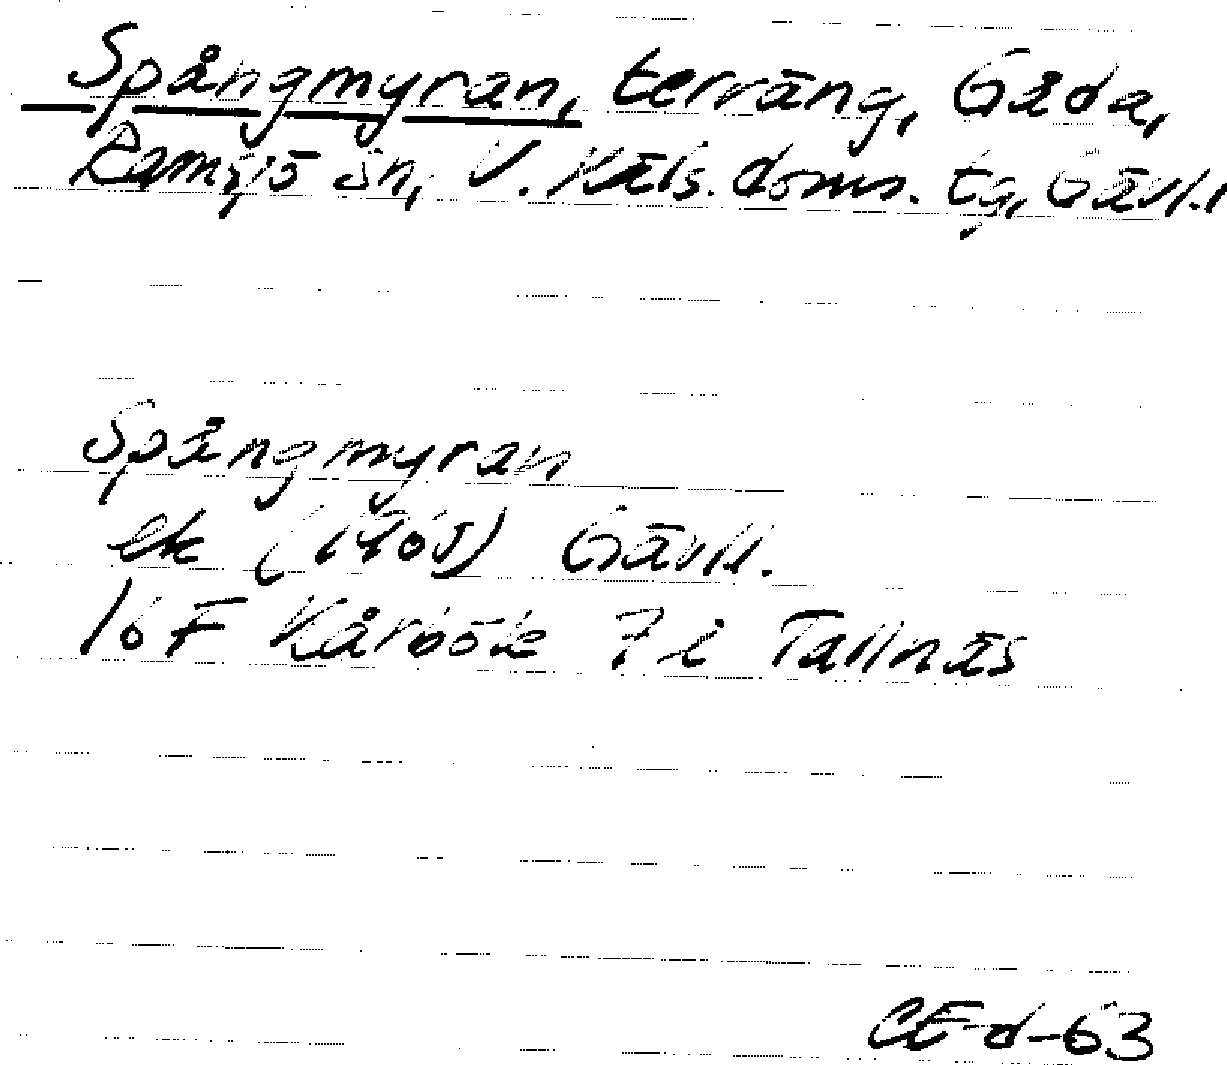 Spångmyran, terräng, Gåda,
Ramsjö sn, V. Häls. doms. tg, Gävl.l
Spångmyran
ek (1965) Gävl.l.
16F Kårböle 7i Tallnäs
CE-d-63